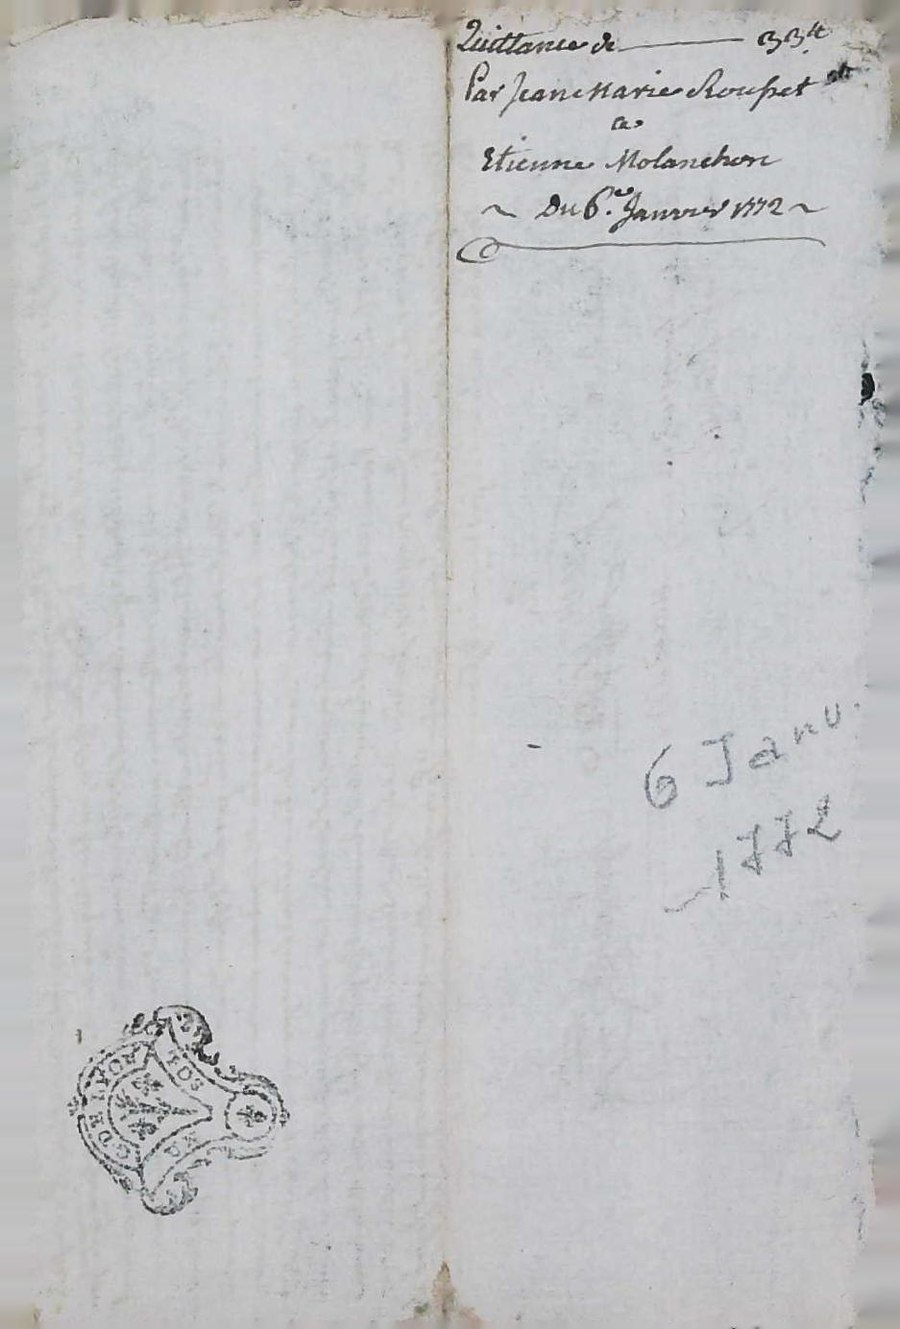 Quittance de 33ᵗᵗ
Par Jean Marie Rousset
a
Etienne Molanchon
~ Du 6.ᵉ Janvier 1772 ~
6 Janv.
1772
G DE LYON
2 DS